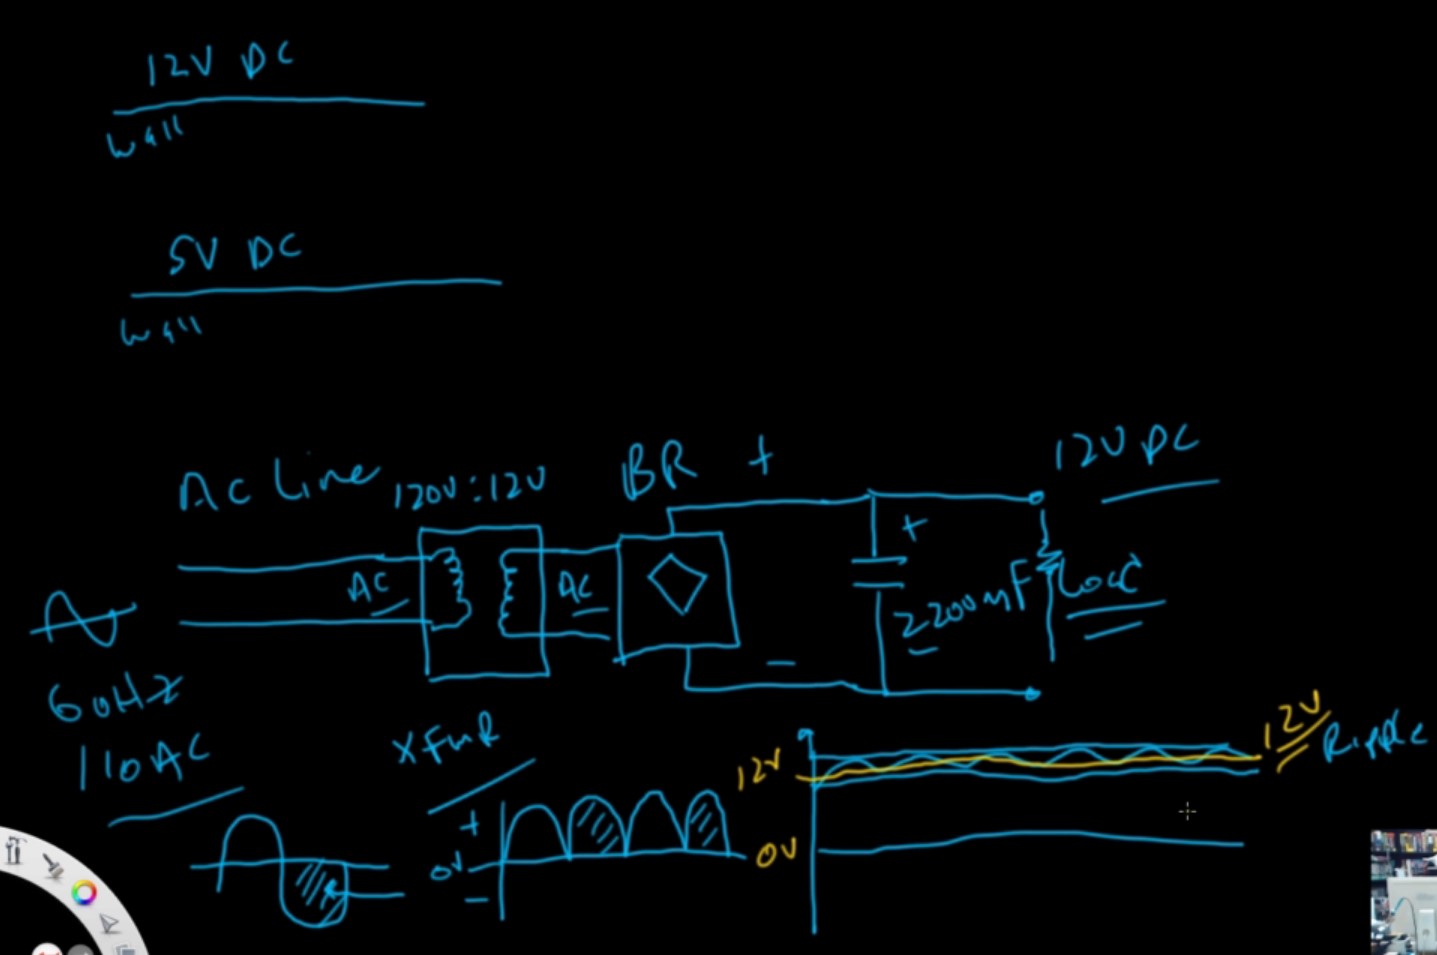 12V DC
Wall
5V DC
Wall
AC Line
120V:12V
BR
+
12V DC
AC
AC
+
2200uF
Load
-
60Hz
110AC
XFMR
+
0V
-
12V
0V
12V
Ripple